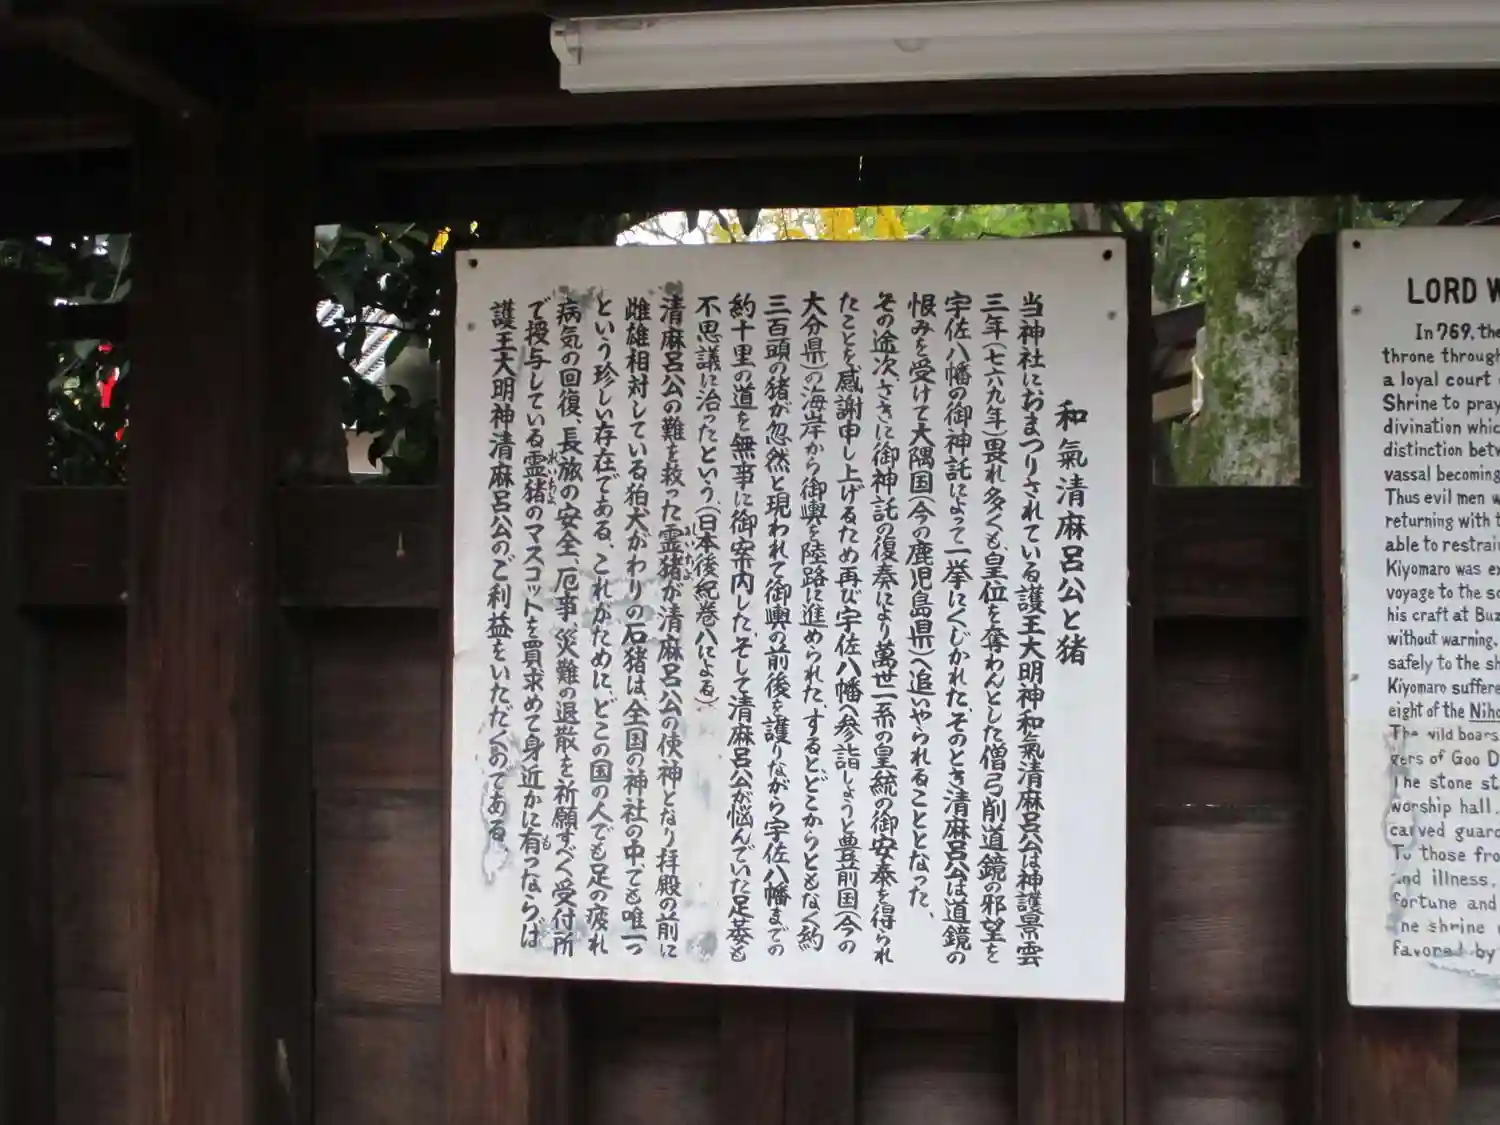 和氣清麻呂公と猪
当神社におまつりされている護王大明神和氣清麻呂公は神護景雲
三年(七六九年)畏れ多くも、皇位を奪わんとした僧弓削道鏡の邪望を
宇佐八幡の御神託によって一挙にくじかれた、そのとき清麻呂公は道鏡の
恨みを受けて大隅国(今の鹿児島県)へ追いやられることとなった、
その途次、さきに御神託の復奏により萬世一系の皇統の御安泰を得られ
たことを感謝申し上げるため再び宇佐八幡へ参詣しようと豊前国(今の
大分県)の海岸から御輿を陸路に進められた、するとどこからともなく約
三百頭の猪が忽然と現われて御輿の前後を護りながら宇佐八幡までの
約十里の道を無事に御案内した、そして清麻呂公が悩んでいた足萎も
不思議に治ったという、(日本後紀巻八による)
清麻呂公の難を救った霊猪が清麻呂公の使神となり拝殿の前に
雌雄相対している狛犬がわりの石猪は、全国の神社の中でも唯一つ
という珍しい存在である、これがために、どこの国の人でも足の疲れ
病気の回復、長旅の安全、厄事災難の退散を祈願すべく受付所
で授与している霊猪のマスコットを買求めて身近かに有っならば
護王大明神清麻呂公のご利益をいただくのである、
LORD W
In 769, the
throne through
a loyal court
Shrine to pray
divination which
distinction betw
vassal becoming
Thus evil men w
returning with t
able to restrain
Kiyomaro was ex
voyage to the so
his craft at Buz
without warning.
safely to the sh
Kiyomaro suffere
eight of the Niho
The wild boars
gers of Goo D
The stone st
worship hall.
carved guard
To those fro
and illness.
fortune and
the shrine
favored by